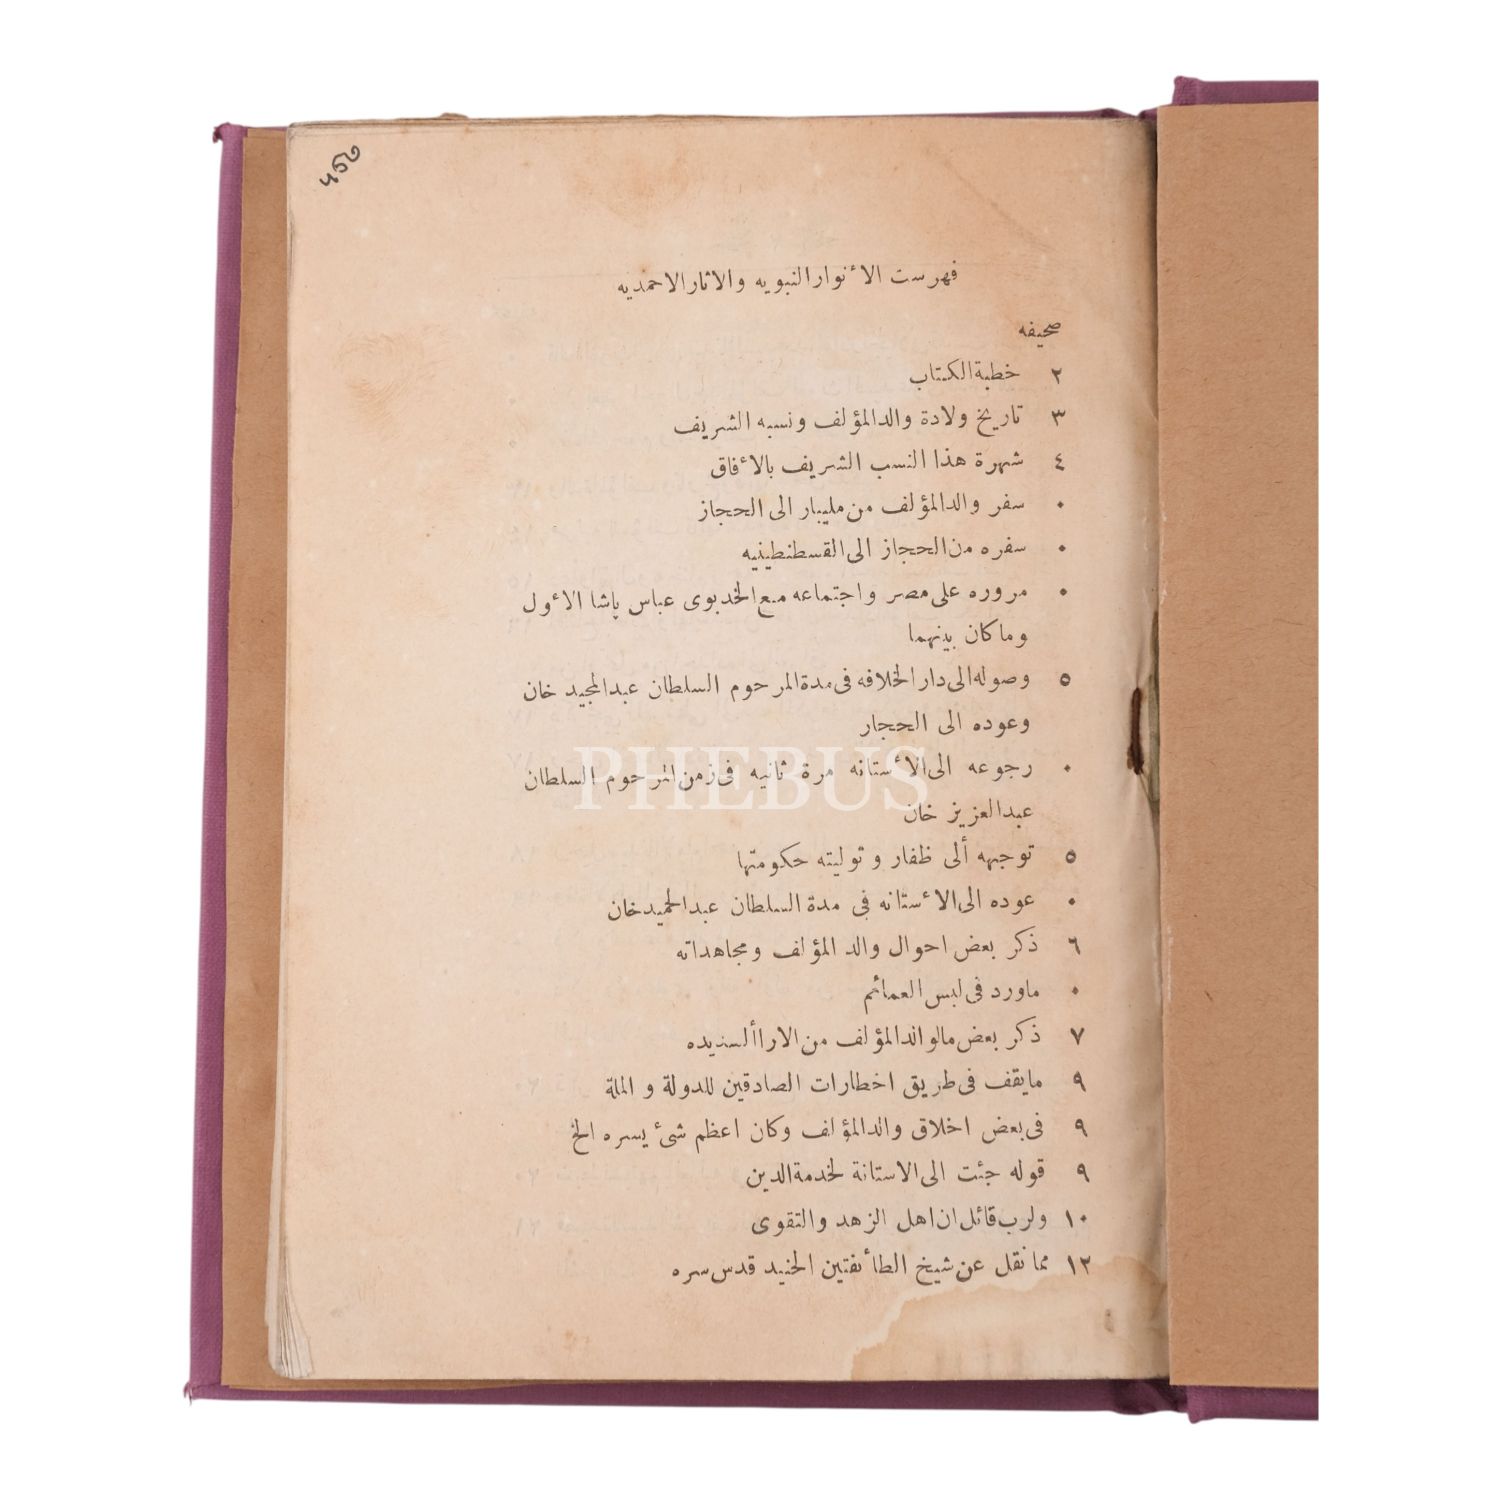 فهرست الأنوار النبويه والاثار الاحمديه
صحيفه
٢ خطبة الكتاب
٣ تاريخ ولادة والد المؤلف ونسبه الشريف
٤ شهرة هذا النسب الشريف بالأفاق
٠ سفر والد المؤلف من مليبار الى الحجاز
٠ سفره من الحجاز الى القسطنطينيه
٠ مروره على مصر واجتماعه مع الخديوى عباس پاشا الأول
وما كان بينهما
٥ وصوله الى دار الخلافه فى مدة المرحوم السلطان عبد المجيد خان
وعوده الى الحجار
٠ رجوعه الى الأستانه مرة ثانيه فى زمن المرحوم السلطان
PHEBUS
عبد العزيز خان
٥ توجهه ألى ظفار و توليته حكومتها
٠ عوده الى الأستانه فى مدة السلطان عبد الحميد خان
٦ ذكر بعض احوال والد المؤلف ومجاهداته
٠ ماورد فى لبس العمائم
٧ ذكر بعض مالوالد المؤلف من الاراأ السديده
٩ مايقف فى طريق اخطارات الصادقين للدولة و الملة
٩ فى بعض اخلاق والد المؤلف وكان اعظم شئ يسره الخ
٩ قوله جئت الى الاستانة لخدمة الدين
١٠ ولرب قائل ان اهل الزهد والتقوى
١٢ مما نقل عن شيخ الطأئفتين الجنيد قدس سره